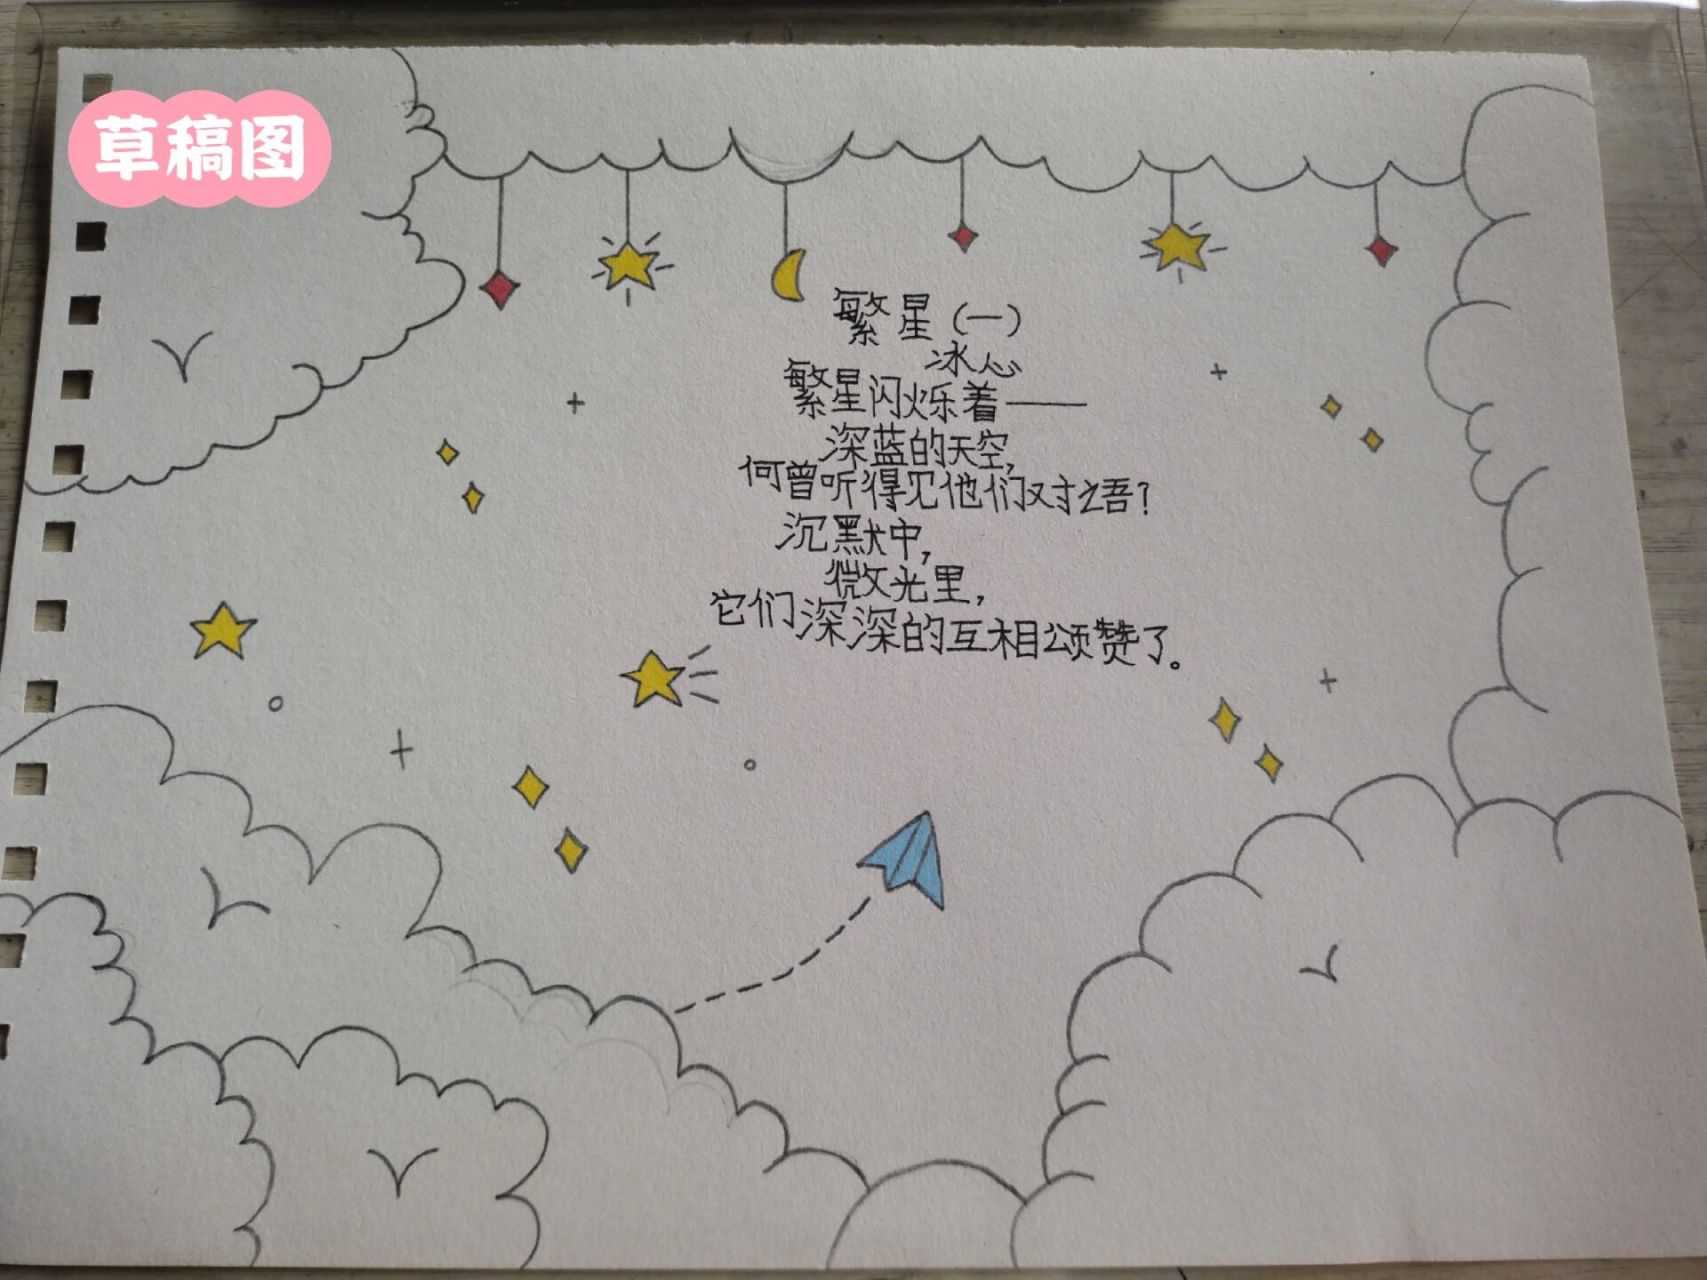 草稿图
繁星（一）
冰心
繁星闪烁着——
深蓝的天空，
何曾听得见他们对语？
沉默中，
微光里，
它们深深的互相颂赞了。